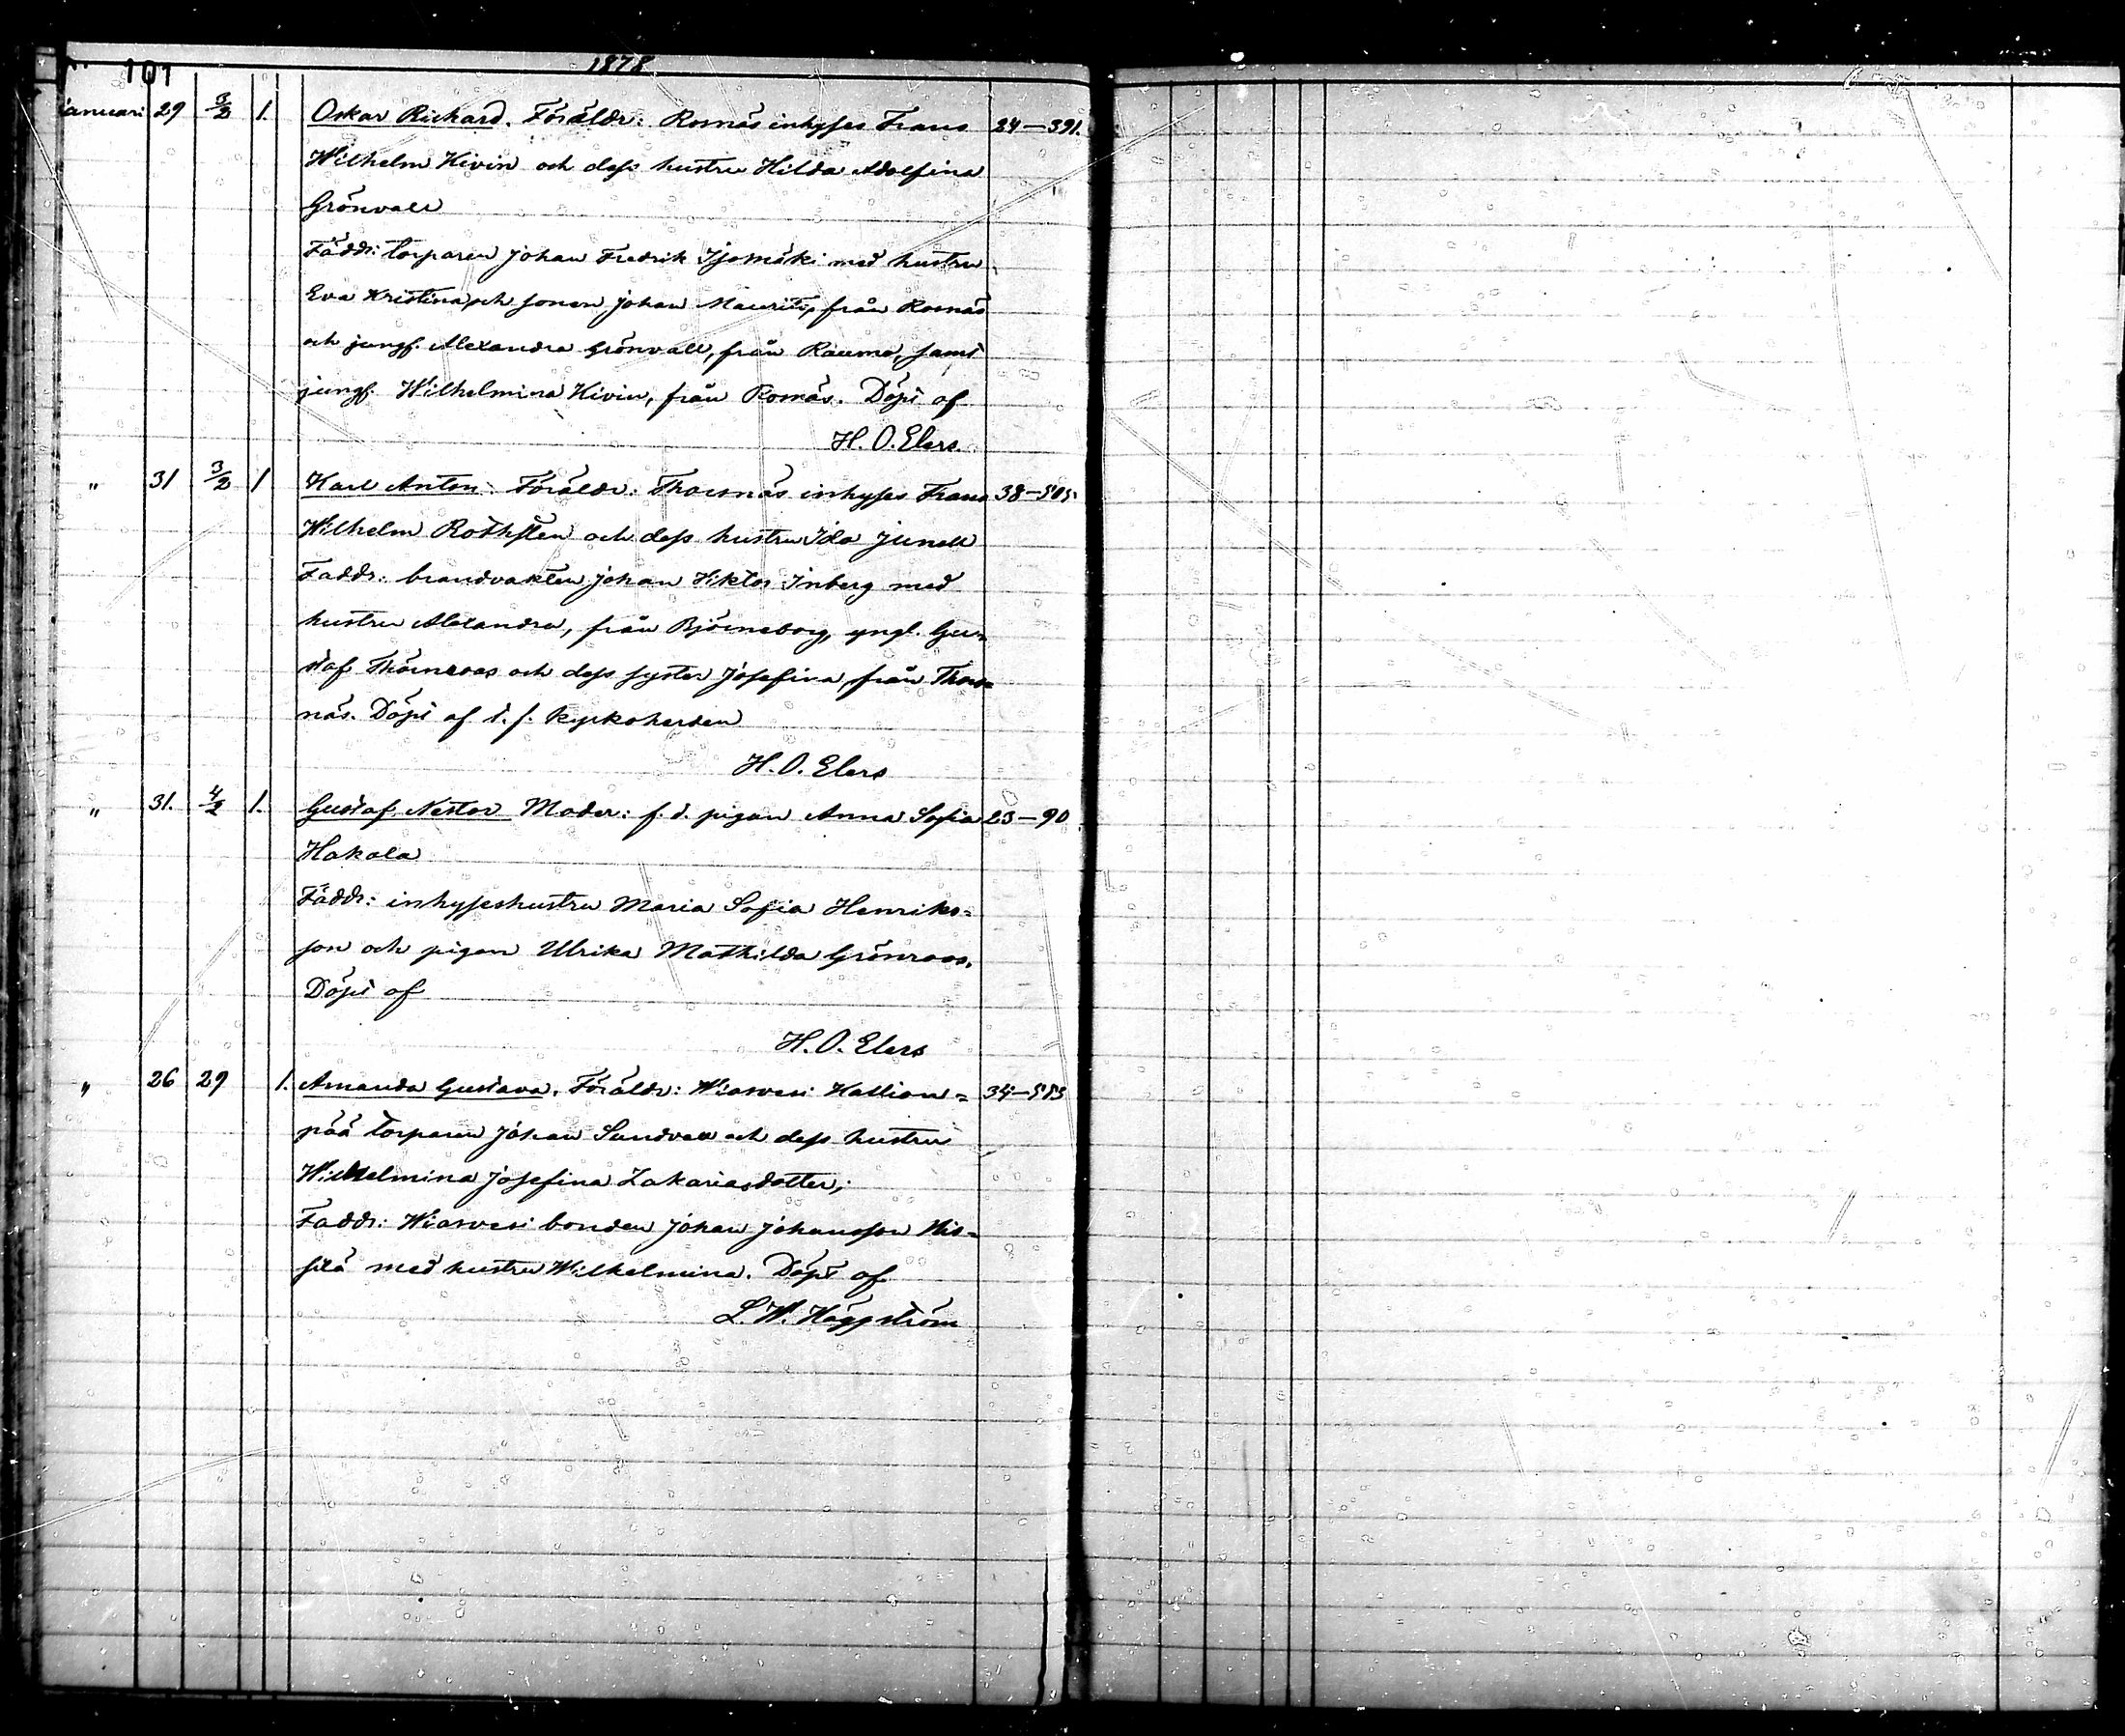 101
1878
Januari 29 3/2 1. Oskar Richard. Föräldr: Rosnäs inhyses Frans 24–391.
Wilhelm Kivin och dess hustru Hilda Adolfina
Grönvall
Faddr: torparen Johan Fredrik Isomäki med hustru
Eva Kristina, och sonen Johan Mauritz, från Rosnäs
och jungf. Alexandra Grönvall, från Raumo, samt
jungf. Wilhelmina Kivin, från Rosnäs. Döpt af
H. O. Elers.
" 31 3/2 1 Karl Anton. Föräldr: Thorsnäs inhyses Frans 38–505
Wilhelm Rothsten och dess hustru Ida Junell
Faddr: brandvakten Johan Viktor Inberg med
hustru Alexandra, från Björneborg, yngl. Gu=
staf Thörnroos och dess syster Josefina, från Thors=
näs. Döpt af t. f. kyrkoherden
H. O. Elers
" 31. 4/2 1. Gustaf Nestor Moder: f. d. pigan Anna Sofia 23–90
Hakala
Faddr: inhyseshustru Maria Sofia Henriks=
son och pigan Ulrika Mathilda Grönroos.
Döpt af
H. O. Elers
" 26 29 1. Amanda Gustava. Föräldr: Wiasvesi Kallion=
pää torparen Johan Sundvall och dess hustru
Wilhelmina Josefina Zakariasdotter;
Faddr: Wiasvesi bonden Johan Johansson
med hustru Wilhelmina. Döpt af
L. W. Häggström